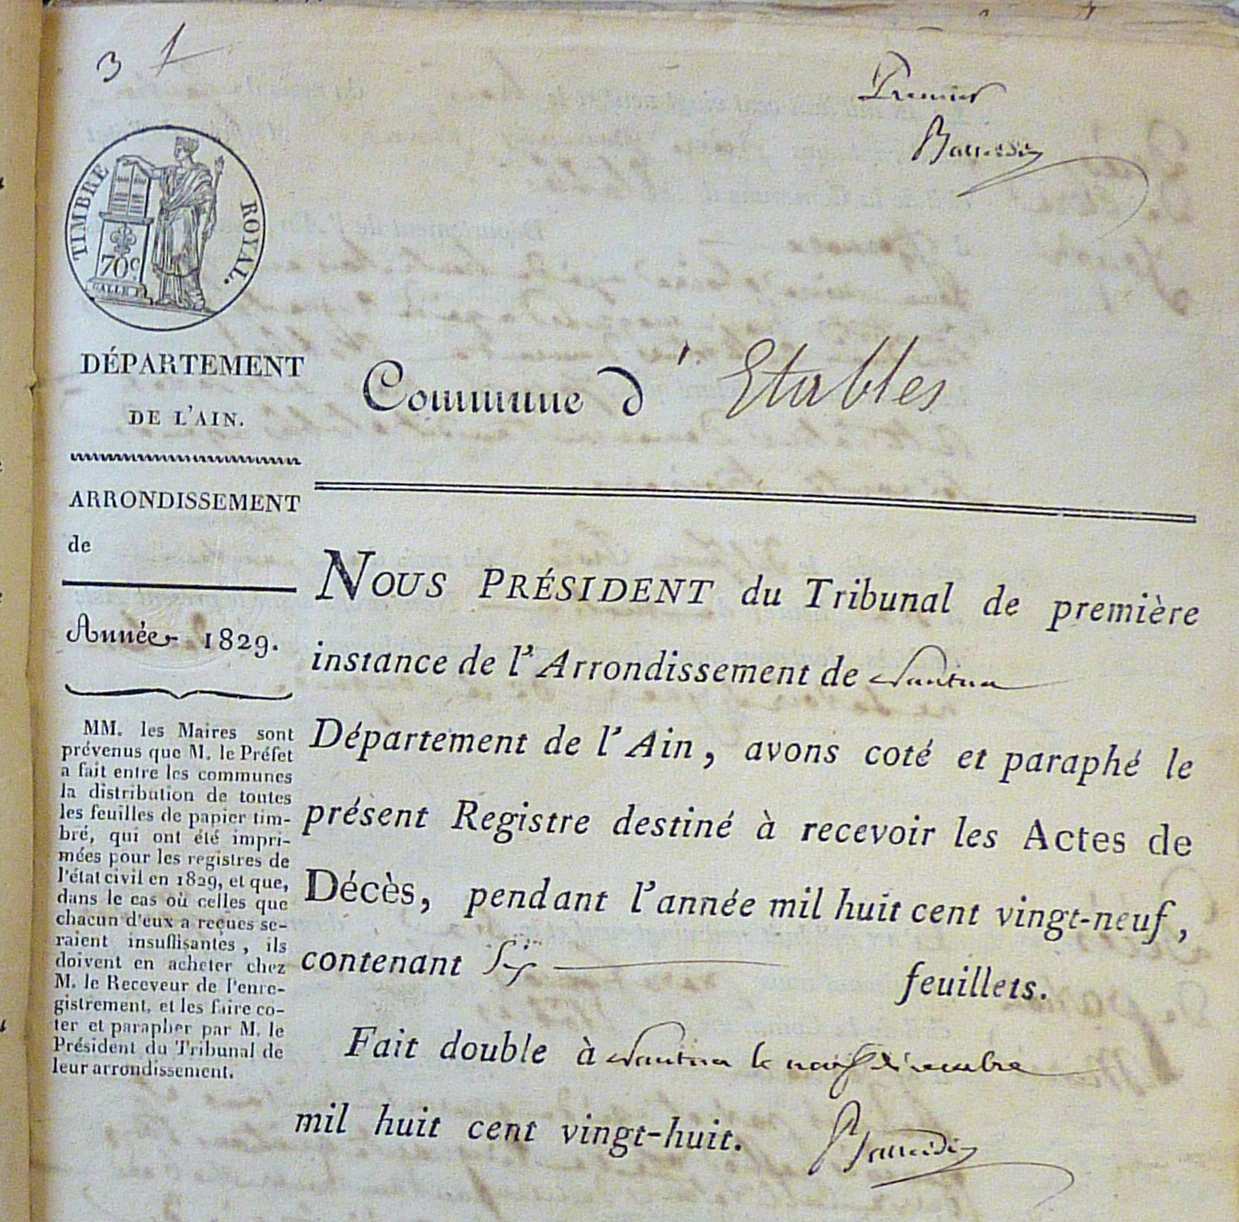 3 1
Premier
TIMBRE ROYAL.
70c
DÉPARTEMENT
DE L'AIN.
Commune d'Etables
ARRONDISSEMENT
de
Année 1829.
MM. les Maires sont
prévenus que M. le Préfet
a fait entre les communes
la distribution de toutes
les feuilles de papier tim-
bré, qui ont été impri-
mées pour les registres de
l'état civil en 1829, et que,
dans le cas où celles que
chacun d'eux a reçues se-
raient insuffisantes, ils
doivent en acheter chez
M. le Receveur de l'enre-
gistrement, et les faire co-
ter et parapher par M. le
Président du Tribunal de
leur arrondissement.
NOUS PRÉSIDENT du Tribunal de première
instance de l'Arrondissement de Nantua
Département de l'Ain, avons coté et paraphé le
présent Registre destiné à recevoir les Actes de
Décès, pendant l'année mil huit cent vingt-neuf,
contenant Six feuillets.
Fait double à Nantua le neuf décembre
mil huit cent vingt-huit.